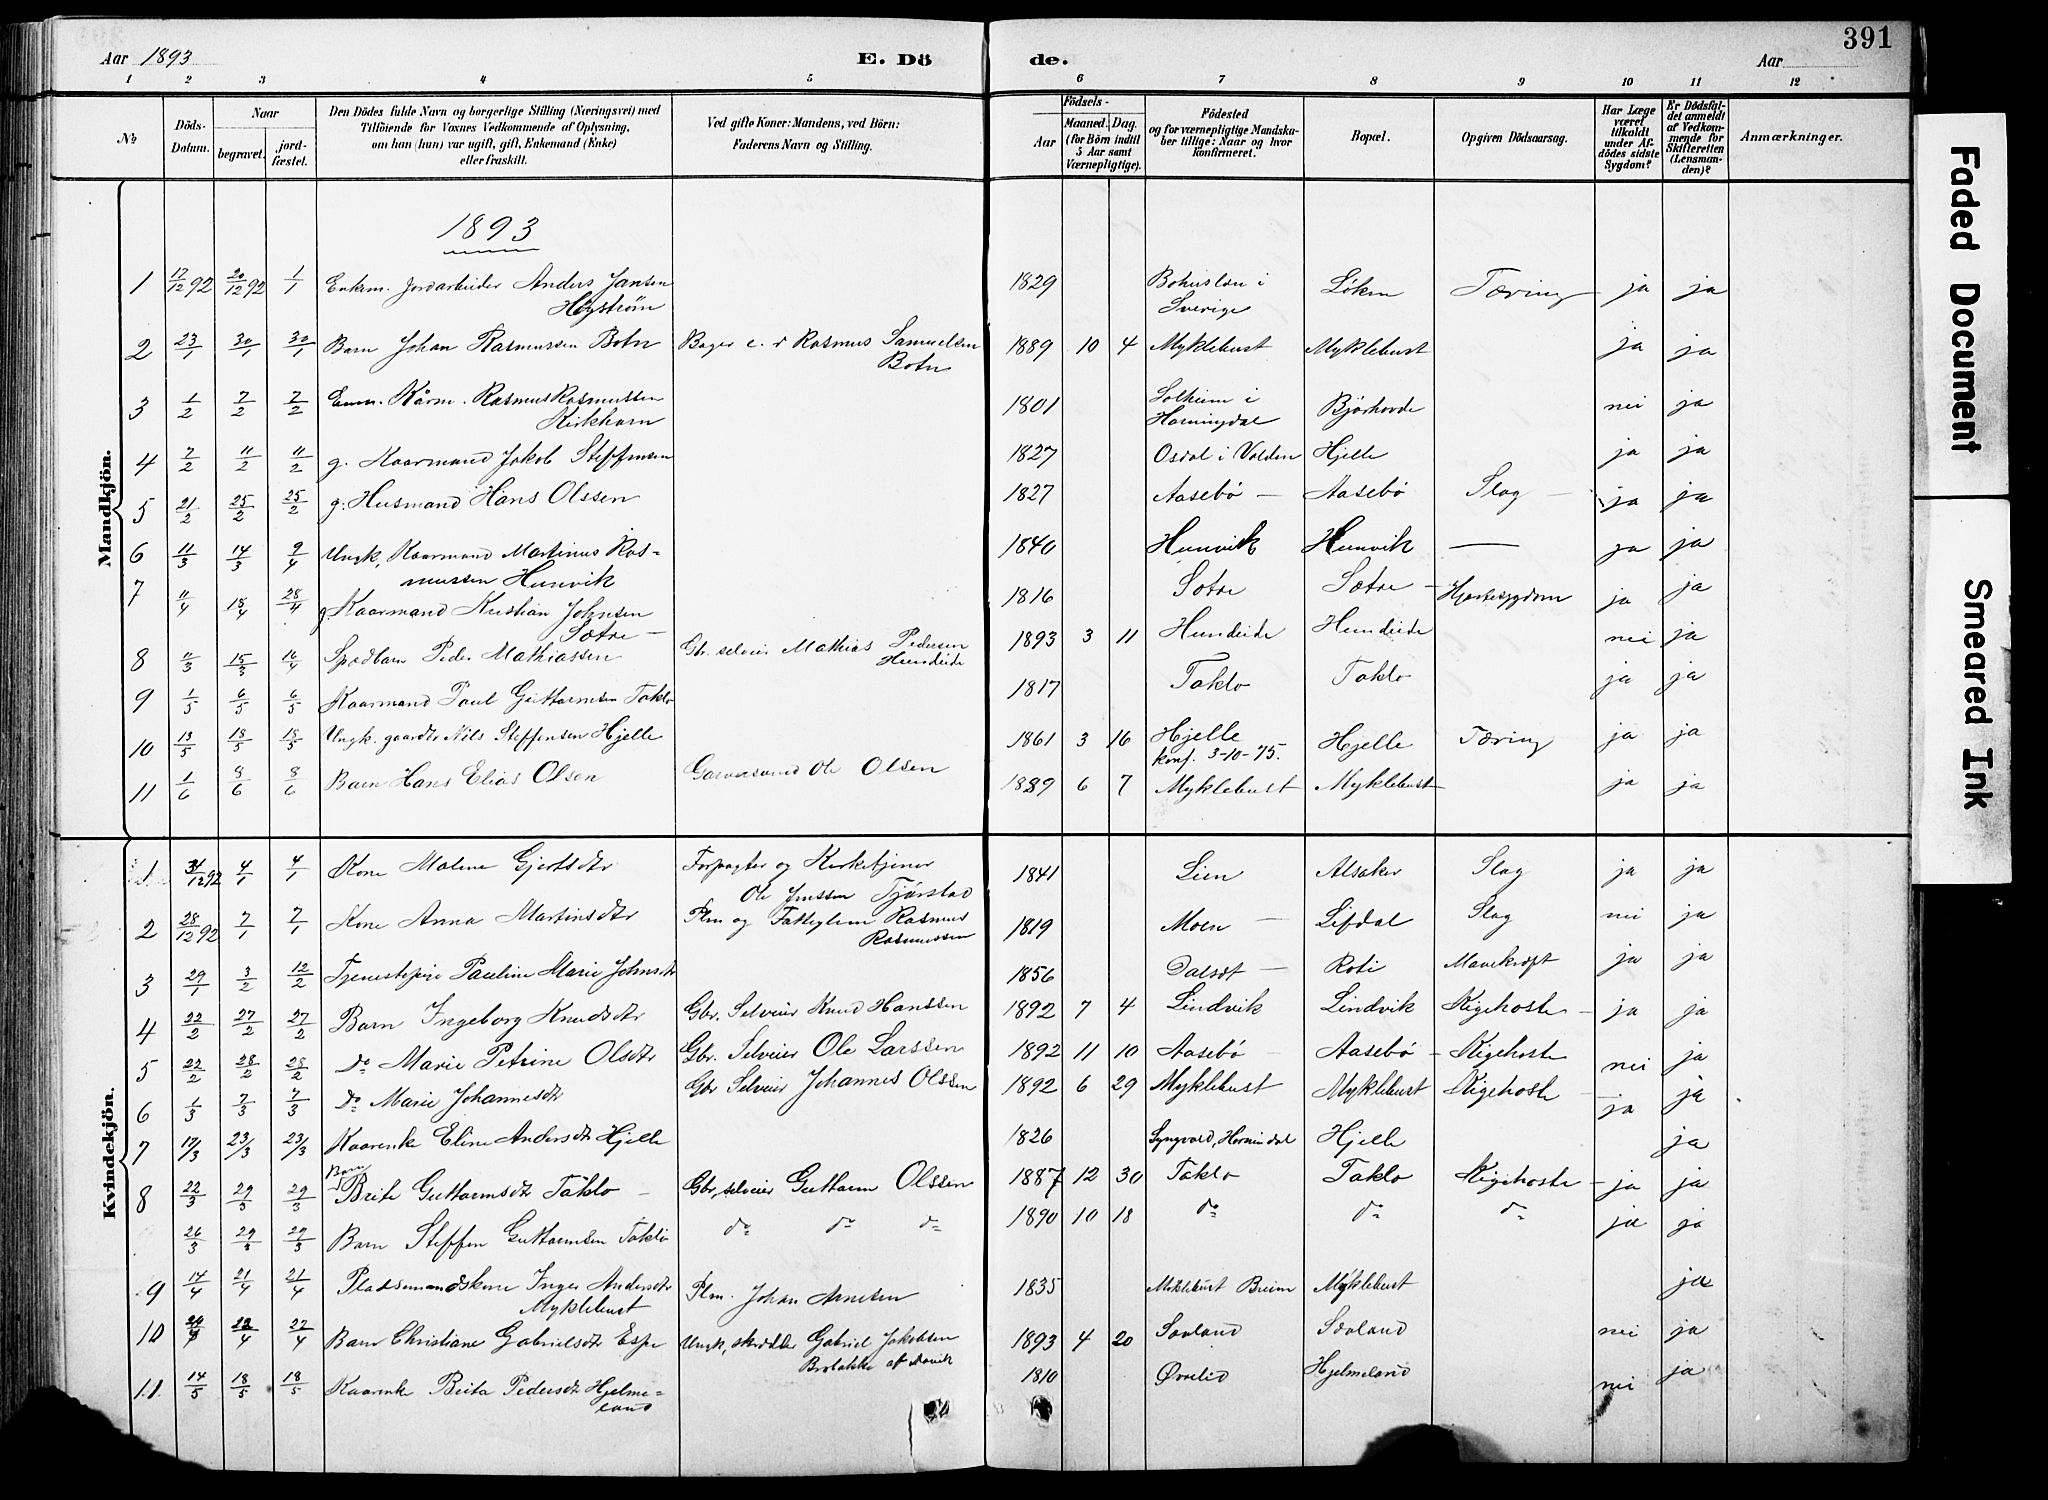 391
Aar 1893
E. Dö
de.
Aar
1 2 3 4 5 6 7 8 9 10 11 12
No.
Döds-Datum.
Naar
begravet.
jord-fæstet.
Den Dödes fulde Navn og borgerlige Stilling (Næringsvei) med
Tilföiende for Voxnes Vedkommende af Oplysning,
om han (hun) var ugift, gift, Enkemand (Enke)
eller fraskilt.
Ved gifte Koner: Mandens, ved Börn:
Faderens Navn og Stilling.
Födsels-
Aar
Maaned. Dag.
(for Börn indtil
5 Aar samt
Værnepligtige).
Födested
og for værnepligtige Mandska-
ber tillige: Naar og hvor
konfirmeret.
Bopæl.
Opgiven Dödsaarsag.
Har Læge
været
tilkaldt
under Af-
dödes sidste
Sygdom?
Er Dödsfal-
det anmeldt
af Vedkom-
mende for
Skifteretten
(Lensman-
den)?
Anmærkninger.
Mandkjön.
1893
1 17/12 92 20/12 92 1/1 Enkem. Jordarbeider Anders Jansen 1829 Bohuslen i Løken Tæring ja ja
Høgstrøm Sverige
2 23/1 30/1 30/1 Barn Johan Rasmussen Botn Rasmus Samuelsen 1889 10 4 Myklebust Myklebust ja ja
Botn
3 1/2 7/2 7/2 Kårm. Rasmus Rasmussen 1801 Solheim i Bjørhovde nei ja
Kirkhorn Horningdal
4 7/2 11/2 11/2 g. Kaarmand Jakob Steffensen 1827 Osdal i Volden Hjelle ja ja
5 21/2 25/2 25/2 g. Husmand Hans Olssen 1827 Aasebø — Aasebø Slag — ja ja
6 11/3 14/3 9/4 Ungk, Kaarmand Martinus Ras- 1840 Hunvik Hunvik — ja ja
mussen Hunvik
7 11/4 18/4 28/4 g. Kaarmand Kristian Johnsen 1816 Sætre Sætre — Hjertesygdom ja ja
Sætre —
8 11/3 15/3 16/4 Spædbarn Peder Mathiassen Gbr. selveier Mathias Pedersen 1893 3 11 Hundeide Hundeide nei ja
Hundeide
9 1/5 6/5 6/5 Kaarmand Paul Guttormsen Taklo 1817 Taklo Taklo ja ja
10 13/5 18/5 18/5 Ungk. gaardbr Nils Steffensen Hjelle 1861 3 16 Hjelle Hjelle Tæring ja ja
konf. 3-10-75.
11 1/6 8/6 8/6 Barn Hans Elias Olsen Garversvend Ole Olsen 1889 6 7 Myklebust Myklebust ja ja
Kvindekjön.
1 31/12 92 4/1 4/1 Kone Malene Gjertsdtr Forpagter og Kirketjener 1841 Lien Alsaker Slag ja ja
Ole Jenssen Tjørstad
2 28/12 92 7/1 7/1 Kone Anna Martinsdtr Plm og Fattiglem Rasmus 1819 Moen — Lefdal Slag nei ja
Rasmussen
3 29/1 3/2 12/2 Tjenestepige Pauline Marie Johnsdtr 1856 — Roti Mavekræft ja ja
4 22/2 27/2 27/2 Barn Ingeborg Knudsdtr Gbr. Selveier Knud Hanssen 1892 7 4 Lindvik Lindvik Kighoste — ja ja
5 22/2 28/2 28/2 do Marie Petrine Olsdtr Gbr. Selveier Ole Larssen 1892 11 10 Aasebø Aasebø — Kighoste nei ja
6 1/3 7/3 7/3 do Marie Johannesdtr Gbr Selveier Johannes Olssen 1892 6 29 Myklebust Myklebust Kighoste — ja ja
7 17/3 23/3 23/3 Kaarenke Eline Andersdtr Hjelle 1826 Hornindal Hjelle ja
8 22/3 29/3 29/3 Barn Brite Guttormsdtr Taklo — Gbr, selveier Guttorm Olssen 1887 12 30 Taklo Taklo Kighoste — ja ja
26/3 29/3 29/3 Barn Steffen Guttormsen Taklo do do do 1890 10 18 do do do ja ja
9 14/4 21/4 21/4 Pladsemandskone Inger Andersdtr Plm. Johan Arnesen 1835 Myklebust Breim Myklebust ja
Myklebust
10 22/4 Barn Christiane Gabrielsdtr Espe Ungk, skrædder Gabriel Jakobsen 1893 4 20 Sæland Sæland nei ja
11 14/5 18/5 18/5 Kaarenke Brita Pedersdtr Hjelme- 1810 Øvrelid Hjelmeland nei ja
land
Faded Document
Smeared Ink